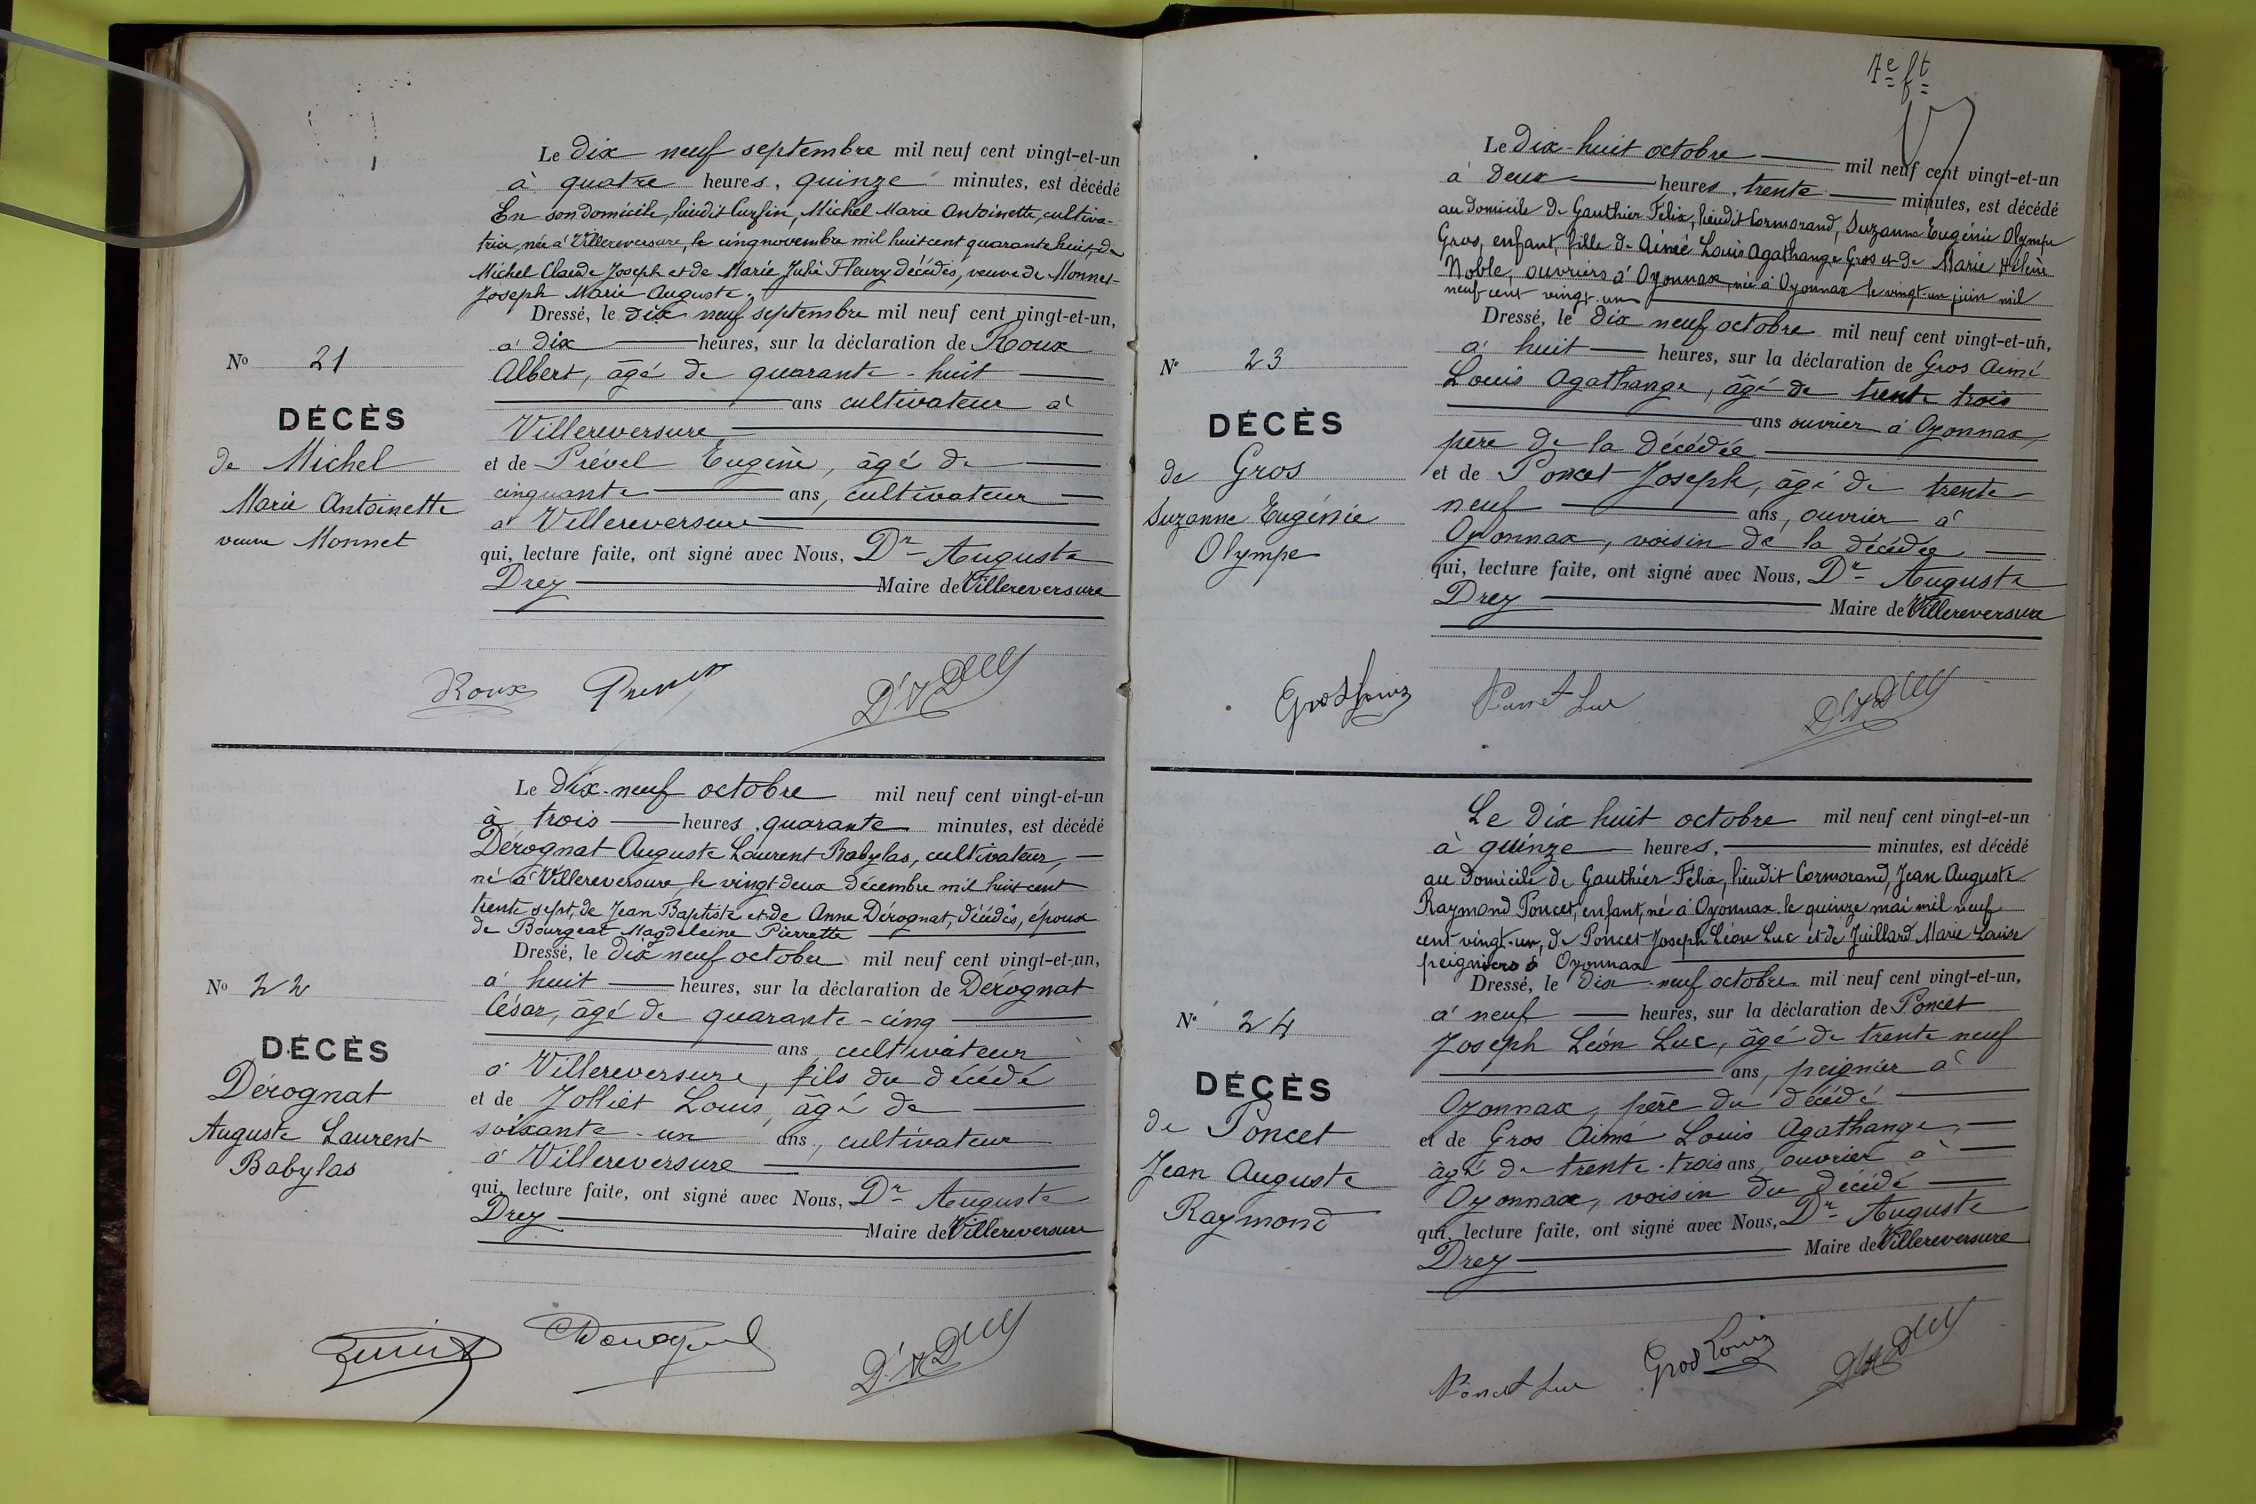 Le dix neuf septembre mil neuf cent vingt-et-un
à quatre heures, quinze minutes, est décédé
En son domicile, lieudit Cuzfin, Michel Marie Antoinette, cultiva-
trice, née à Villereversure, le cinq novembre mil huit cent quarante huit, de
Michel Claude Joseph et de Marie Julie Fleury décédés, veuve de Monnet
Joseph Marie Auguste.
Dressé, le dix neuf septembre mil neuf cent vingt-et-un,
à dix heures, sur la déclaration de Roux
Albert, âgé de quarante-huit
ans cultivateur à
Villereversure
et de Prével Eugène, âgé de
cinquante ans, cultivateur
à Villereversure
qui, lecture faite, ont signé avec Nous, Dr Auguste
Drey Maire de Villereversure
No 21
DÉCÈS
de Michel
Marie Antoinette
veuve Monnet
Roux
Dr Drey
Le dix-neuf octobre mil neuf cent vingt-et-un
à trois heures, quarante minutes, est décédé
Dérognat Auguste Laurent Babylas, cultivateur,
né à Villereversure, le vingt deux décembre mil huit cent
trente sept, de Jean Baptiste et de Anne Dérognat, décédés, époux
de Bourgeat Magdeleine Pierrette
Dressé, le dix neuf octobre mil neuf cent vingt-et-un,
à huit heures, sur la déclaration de Dérognat
César, âgé de quarante-cinq
ans, cultivateur
à Villereversure, fils du décédé
et de Jolliet Louis, âgé de
soixante-un ans, cultivateur
à Villereversure
qui, lecture faite, ont signé avec Nous, Dr Auguste
Drey Maire de Villereversure
No 22
DÉCÈS
Dérognat
Auguste Laurent
Babylas
Dr Drey
7e ft
Le dix-huit octobre mil neuf cent vingt-et-un
à deux heures, trente minutes, est décédé
au domicile de Gauthier Félix, lieudit Cormorand, Suzanne Eugénie Olympe
Gros, enfant, fille de Aimé Louis Agathange Gros et de Marie Hélène
Noble, ouvriers à Oyonnax, née à Oyonnax le vingt-un juin mil
neuf cent vingt-un
Dressé, le dix neuf octobre mil neuf cent vingt-et-un,
à huit heures, sur la déclaration de Gros Aimé
Louis Agathange, âgé de trente trois
ans ouvrier à Oyonnax,
père de la décédée
et de Poncet Joseph, âgé de trente
neuf ans, ouvrier à
Oyonnax, voisin de la décédée
qui, lecture faite, ont signé avec Nous, Dr Auguste
Drey Maire de Villereversure
No 23
DÉCÈS
de Gros
Suzanne Eugénie
Olympe
Gros Louis Poncet Luc Dr Drey
Le dix huit octobre mil neuf cent vingt-et-un
à quinze heures, minutes, est décédé
au domicile de Gauthier Félix, lieudit Cormorand, Jean Auguste
Raymond Poncet, enfant, né à Oyonnax le quinze mai mil neuf
cent vingt-un, de Poncet Joseph Léon Luc et de Juillard Marie Louise
peigniers à Oyonnax
Dressé, le dix-neuf octobre mil neuf cent vingt-et-un,
à neuf heures, sur la déclaration de Poncet
Joseph Léon Luc, âgé de trente neuf
ans, peignier à
Oyonnax, père du décédé
et de Gros Aimé Louis Agathange,
âgé de trente-trois ans, ouvrier à
Oyonnax, voisin du décédé
qui, lecture faite, ont signé avec Nous, Dr Auguste
Drey Maire de Villereversure
No 24
DÉCÈS
de Poncet
Jean Auguste
Raymond
Poncet Luc Gros Louis Dr Drey